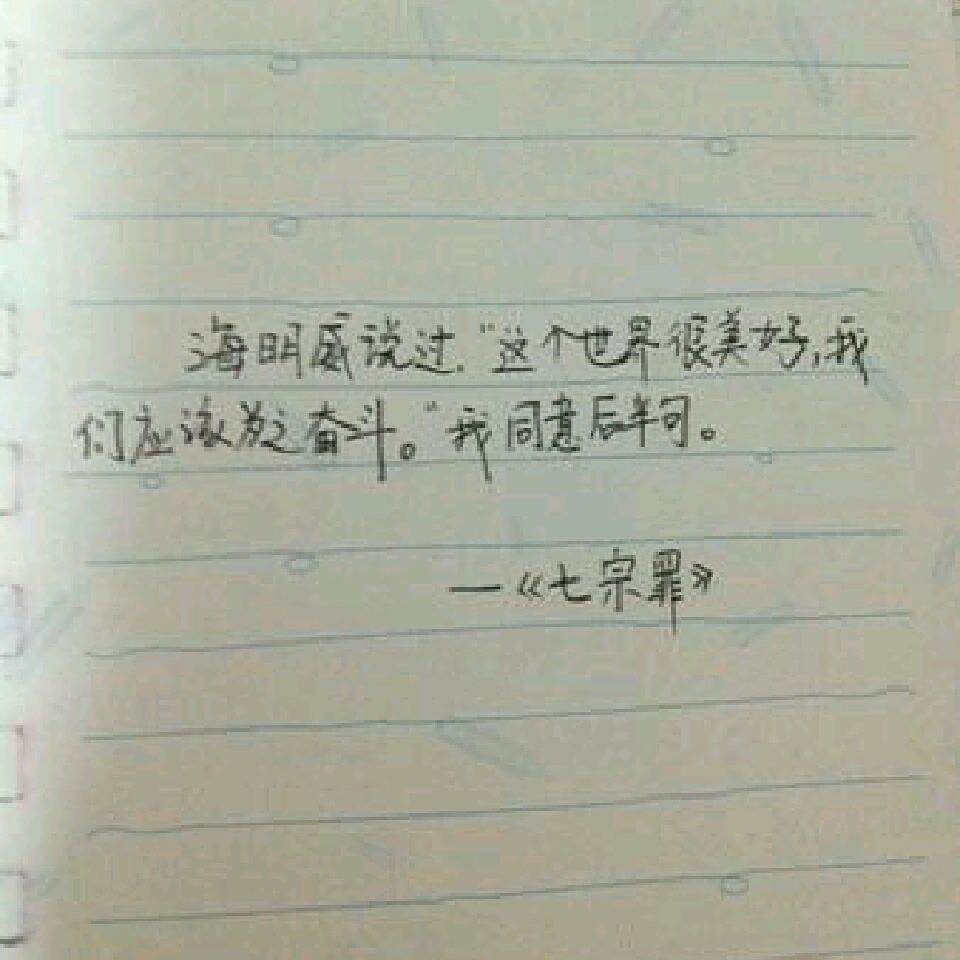 海明威说过.“这个世界很美好,我
们应该为之奋斗。”我同意后半句。
—《七宗罪》